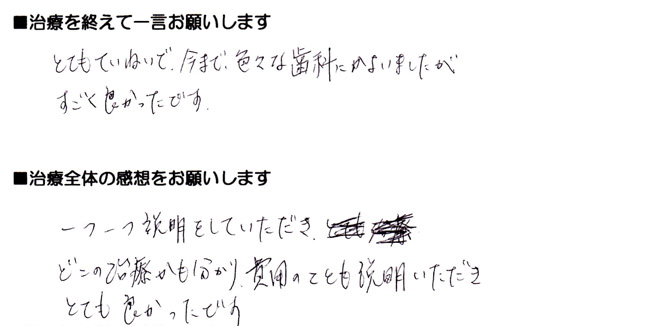 ■治療を終えて一言お願いします
とてもていねいで、今まで、色々な歯科にかよいましたが
すごく良かったです.
■治療全体の感想をお願いします
一つ一つ説明をしていただき、
どこの治療かも分かり、費用のことも説明いただき
とても良かったです